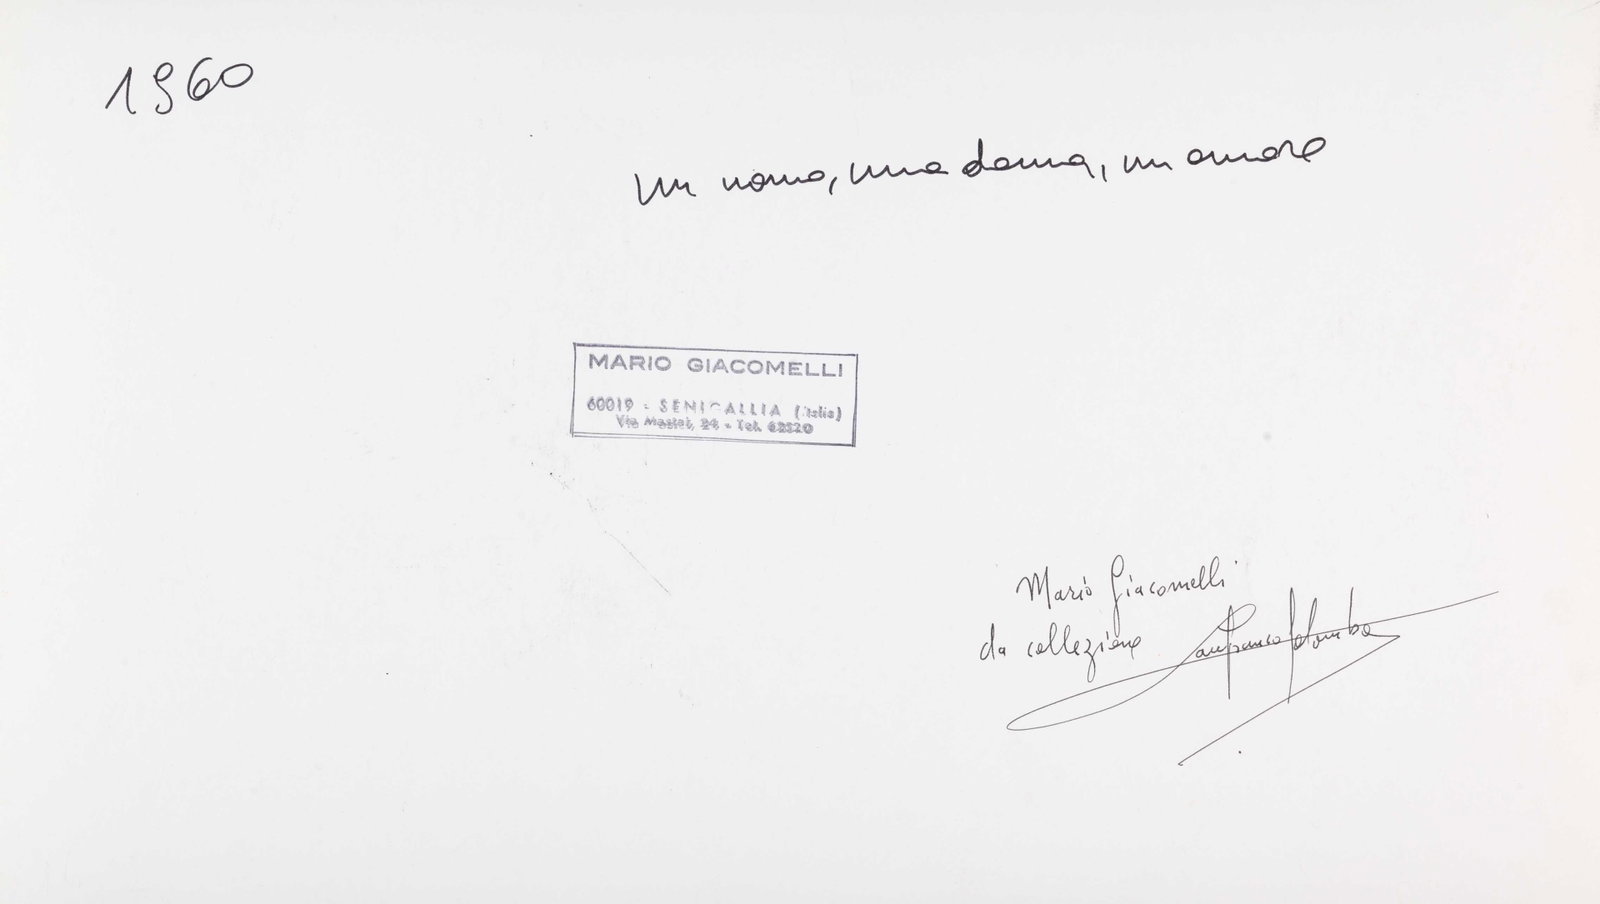 1960
un uomo, una donna, un amore
MARIO GIACOMELLI
60019 - SENIGALLIA (Italia)
Via Mastai, 24 - Tel. 62520
Mario Giacomelli
da collezione Lanfranco Colombo